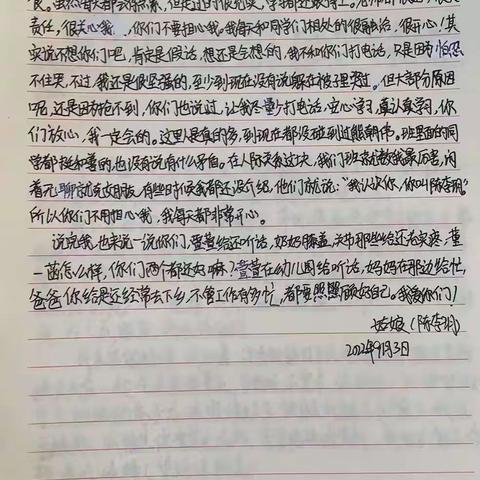 良。虽然每天都会很累，但是过的很充实，学习都还跟得上。老师都很
责任，很关心我，你们不要担心我。我每天和同学们相处的很融洽，很开心！其
实说不想你们吧，肯定是假话，想还是会想的，我不和你们打电话，只是因为怕忍
不住哭，不过，我还是很坚强的，至少到现在没有说躲在被子里哭过。但大部分原因
呢，还是因为抢不到，你们也说过，让我尽量少打电话，安心学习，认真学习，你
们放心，我一定会的。这里是真的多，到现在都没碰到过熊朝伟。班里面的同
学都挺和善的，也没有说有什么矛盾。在人际关系这块，我们班
若无聊 有些时候我都还没介绍，他们就说："我认识你，你叫陈李玥。"
所以你们不用担心我，我每天都非常开心。
说完我，也来说一说你们，萱萱给还听话，奶奶膝盖，关节那些给还老实疼，董
一菡怎么样，你们两个都还好嘛？萱萱在幼儿园给听话，妈妈在那边给忙，
爸爸你给是还经常去下乡，不管工作有多忙，都要照顾好自己。我爱你们！
姑娘（陈李玥）
2022年9月3日